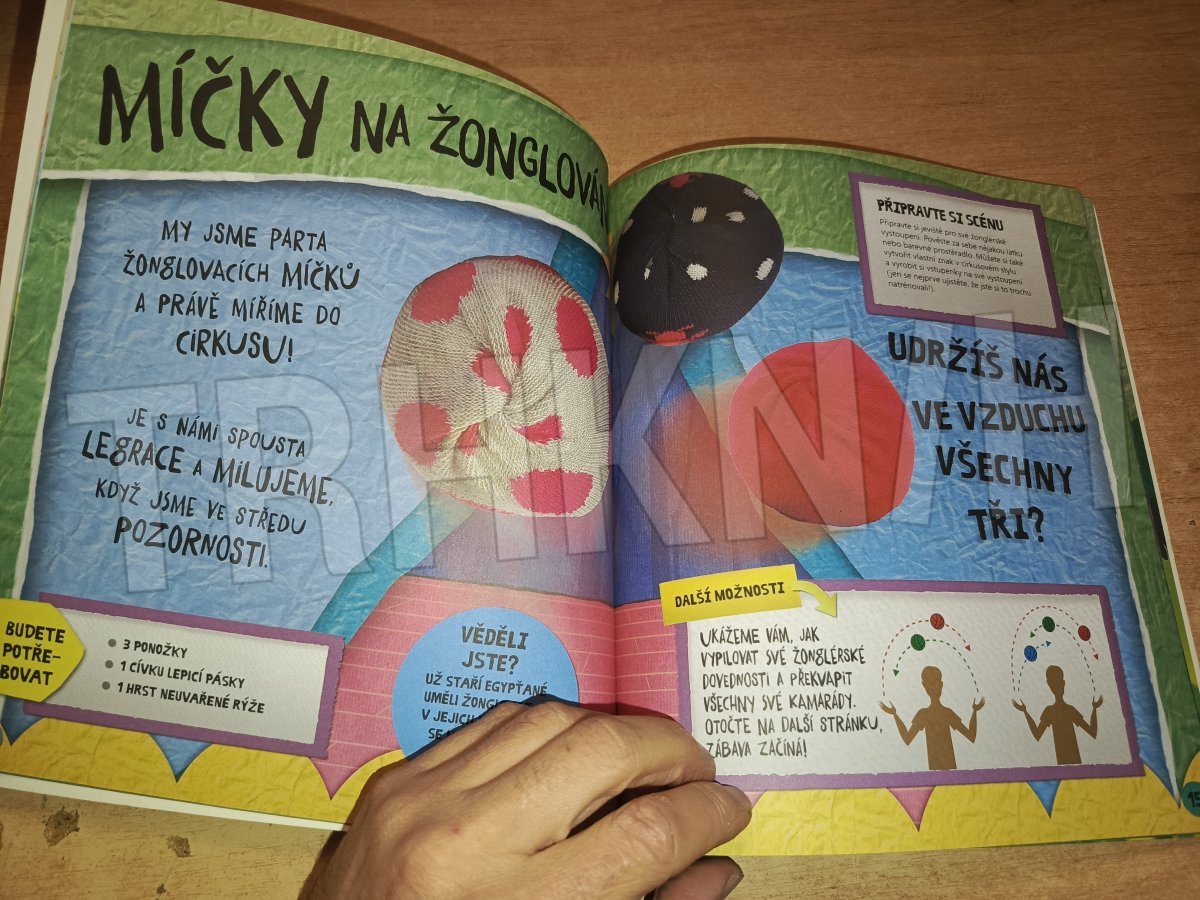 MÍČKY NA ŽONGLOVÁN
MY JSME PARTA
ŽONGLOVACÍCH MÍČKŮ
A PRÁVĚ MÍŘÍME DO
CIRKUSU!
JE S NÁMI SPOUSTA
LEGRACE A MILUJEME,
KDYŽ JSME VE STŘEDU
POZORNOSTI.
BUDETE
POTŘE-
BOVAT
3 PONOŽKY
1 CÍVKU LEPICÍ PÁSKY
1 HRST NEUVAŘENÉ RÝŽE
VĚDĚLI
JSTE?
UŽ STAŘÍ EGYPŤANÉ
UMĚLI
V JEJICH
PŘIPRAVTE SI SCÉNU
Připravte si jeviště pro své žonglérské
vystoupení. Pověste za sebe nějakou látku
nebo barevné prostěradlo. Můžete si také
vytvořit vlastní znak v cirkusovém stylu
a vyrobit si vstupenky na své vystoupení
(jen se nejprve ujistěte, že jste si to trochu
natrénovali!).
UDRŽÍŠ NÁS
VE VZDUCHU
VŠECHNY
TŘI?
DALŠÍ MOŽNOSTI
UKÁŽEME VÁM, JAK
VYPILOVAT SVÉ ŽONGLÉRSKÉ
DOVEDNOSTI A PŘEKVAPIT
VŠECHNY SVÉ KAMARÁDY.
OTOČTE NA DALŠÍ STRÁNKU,
ZÁBAVA ZAČÍNÁ!